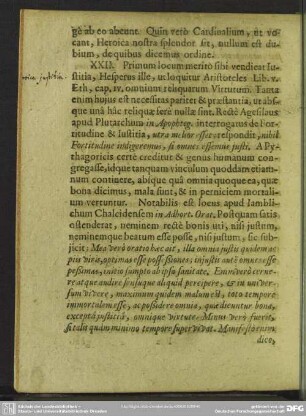 gè ab eo abeunt. Quin verò Cardinalium, ut vo-
cant, Heroica nostra splendor sit, nullum est du-
bium, de quibus dicemus ordine.
XXII. Primum locum meritò sibi vendicat Iu-
stitia, Hesperus ille, ut loquitur Aristoteles Lib. v.
Eth, cap. iv. omnium reliquarum Virtutum. Tanta
enim hujus est necessitas pariter & præstantia, ut abs-
que unâ hâc reliquæ ferè nullæ sint. Rectè Agesilaus
apud Plutarchum in Apophteg. interrogatus de For-
titudine & Iustitia, utra melior esset, respondit, nihil
Fortitudine indigeremus, si omnes essemus justi. A Py-
thagoricis certè creditur & genus humanum con-
gregasse, idque tanquam vinculum quoddam etiam-
num continere, absque quâ omnia quoque ea, quæ
bona dicimus, mala sunt, & in perniciem mortali-
um vertuntur. Notabilis est locus apud Iambli-
chum Chalcidensem in Adhort. Orat. Postquam satis
ostenderat, neminem rectè bonis uti, nisi justum,
neminemque beatum esse posse, nisi justum, sic sub-
jicit; Mea verò oratio hæc ait, ista omnia justis quidem ac
piis viris, optimas esse possessiones, injustis autē omnes esse
pessimas, initio sumpto ab ipsa sanitate. Enimverò cerne-
re atque audire sensusque aliquid percipere, & in univer-
sum vivere, maximum quidem malum est, toto tempore
immortalem esse, ac possidere omnia, quæ dicuntur bona,
exceptâ justitiâ, omnique virtute. Minus verò fuerit,
si talis quàm minimo tempore supervivat. Manifestò enim
dico,